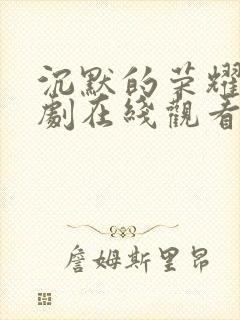 沉默的荣耀
劇在綫觀看
詹姆斯里昂